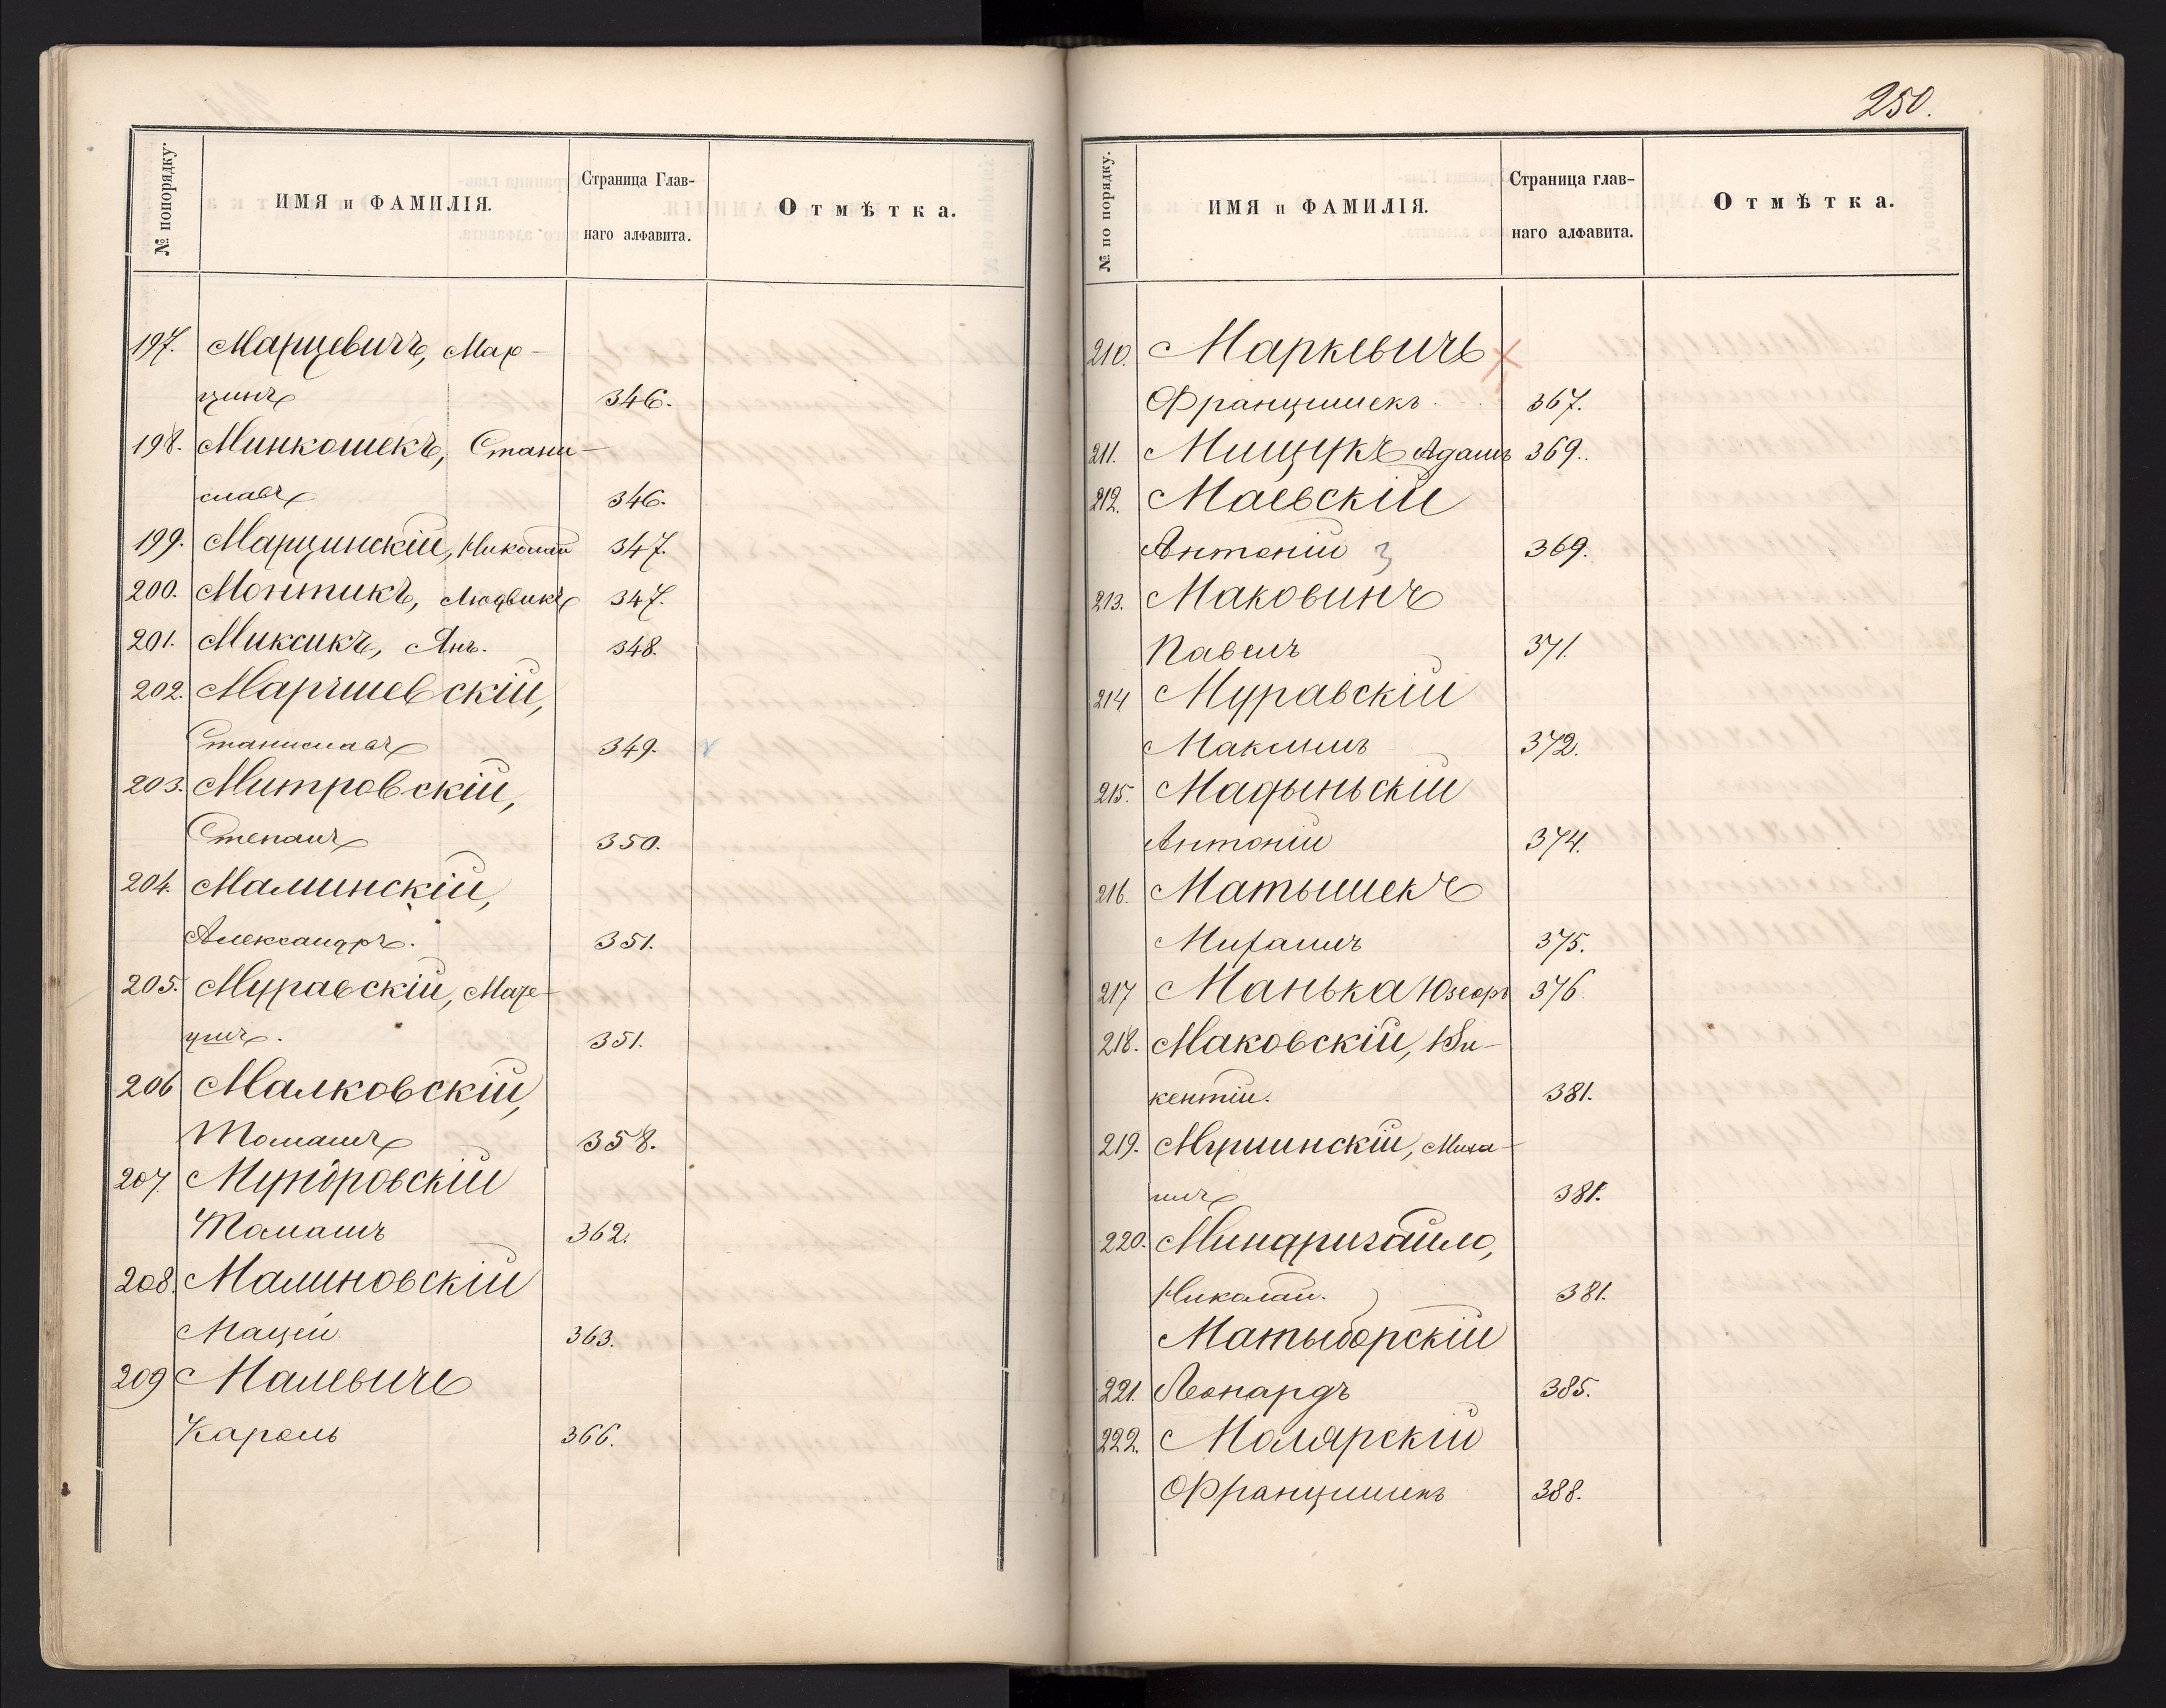 № попорядку.
ИМЯ и ФАМИЛІЯ.
Страница Глав-
наго алфавита.
Отмѣтка.
197. Марцевичъ, Мар-
цинъ 346.
198. Минкошекъ, Стани-
славъ 346.
199. Марцинскій, Николай 347.
200. Монтикъ, Людвикъ 347.
201. Миксикъ, Янъ. 348.
202. Маршевскій,
Станиславъ 349.
203. Митровскій,
Степанъ 350.
204. Малинскій,
Александръ. 351.
205. Муравскій, Мар-
цинъ. 351.
206 Малковскій,
Томашъ 358.
207. Мундровскій
Томашъ 362.
208. Малиновскій
Мацей 363.
209 Малевичъ
Кароль 366.
250.
№ по порядку.
ИМЯ и ФАМИЛІЯ.
Страница глав-
наго алфавита.
Отмѣтка.
210. Маркевичъ
Францишекъ. 367.
211. Мищукъ Адамъ 369.
212. Маевскій
Антоній 3 369.
213. Маковинъ
Павелъ 371.
214 Муравскій
Максимъ 372.
215. Мадыньскій
Антоній 374.
216. Матышекъ
Михаилъ 375.
217 Манька Юзефъ 376.
218. Маковскій, Ви-
кентій. 381.
219. Мушинскій, Миха-
илъ 381.
220. Миндригайло,
Николай. 381.
Матыборскій
221. Леонардъ 385.
222. Молярскій
Францишекъ 388.